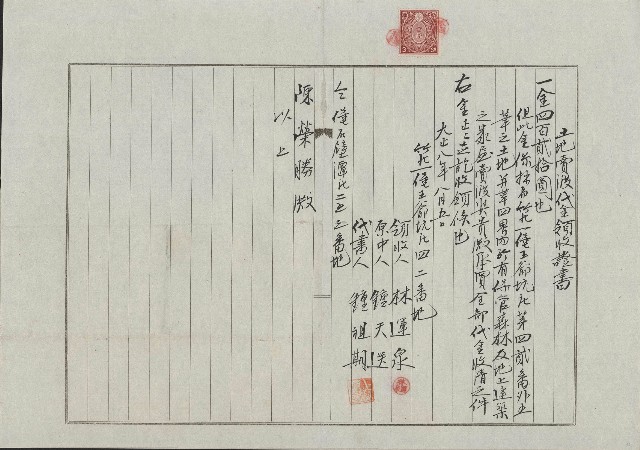 土地賣渡代金領收證書
一金四百貳拾圓也
但此金係擔當竹北一堡王爺坑庄第四貳番外五
筆之土地并筆四界內所有保管森林及地上建築
之家屋賣渡與貴殿承買全部代金收清之件
右金正ニ之訖收領候也
大正八年八月五日
竹北一堡王爺坑庄四二番地
領收人 林運泉
原中人 鐘天送
代書人 鐘祖期
仝堡石壁潭庄二五三番地
陳榮勝殿
以上